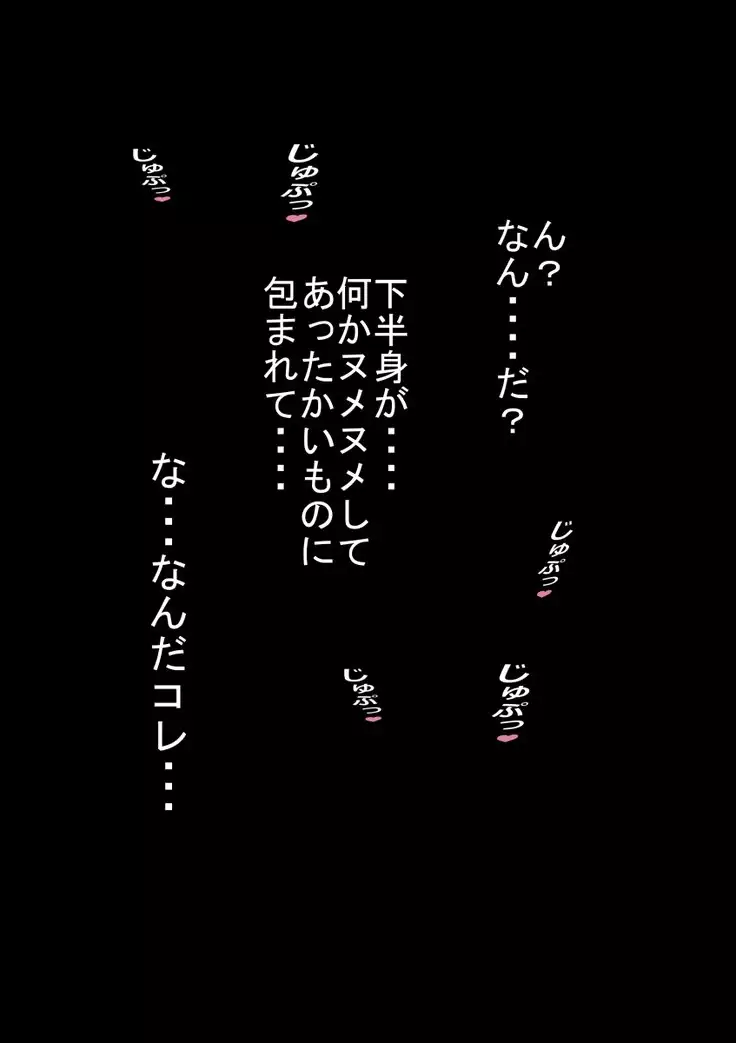 ん？
なん・・・・だ？
じゅぷっ♥
じゅぷっ♥
下半身が・・・・
何かヌメヌメして
あったかいものに
包まれて・・・・
じゅぷっ♥
じゅぷっ♥
じゅぷっ♥
な・・・なんだコレ・・・